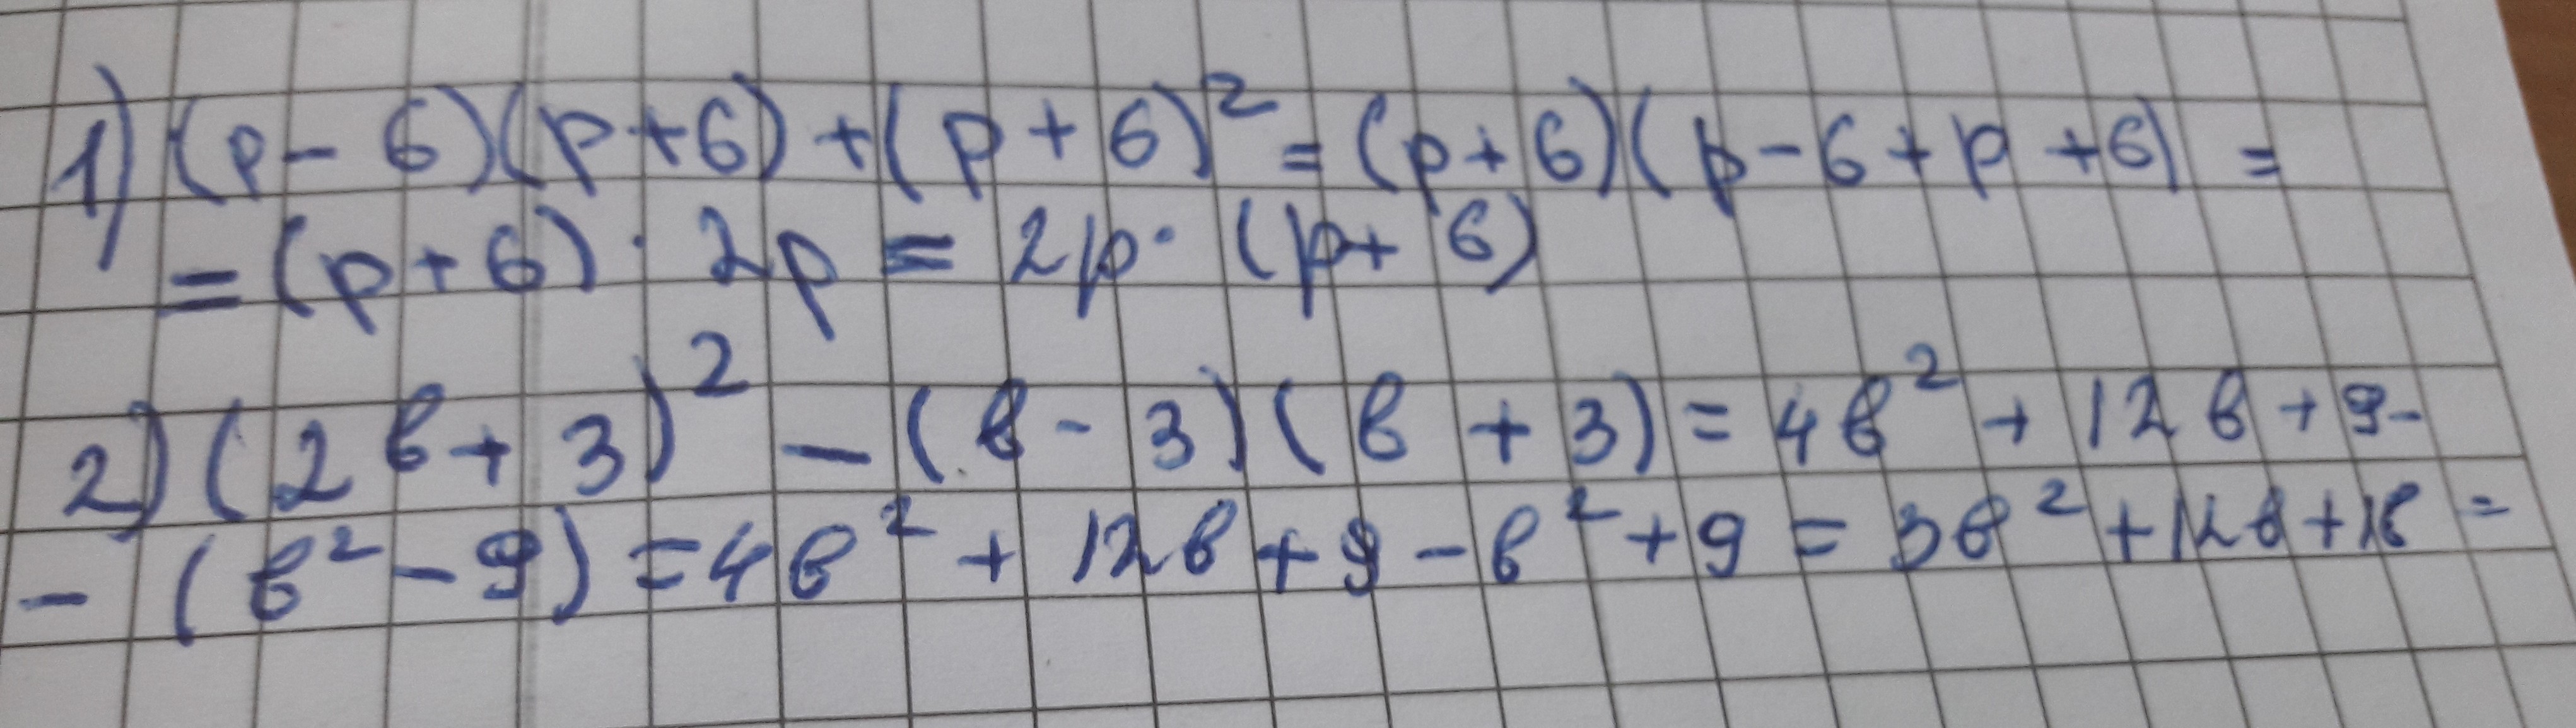 1) (p - 6)(p + 6) + (p + 6)² = (p + 6)(p - 6 + p + 6) =
= (p + 6) · 2p = 2p · (p + 6)
2) (2в + 3)² - (в - 3)(в + 3) = 4в² + 12в + 9 -
- (в² - 9) = 4в² + 12в + 9 - в² + 9 = 3в² + 12в + 18 =